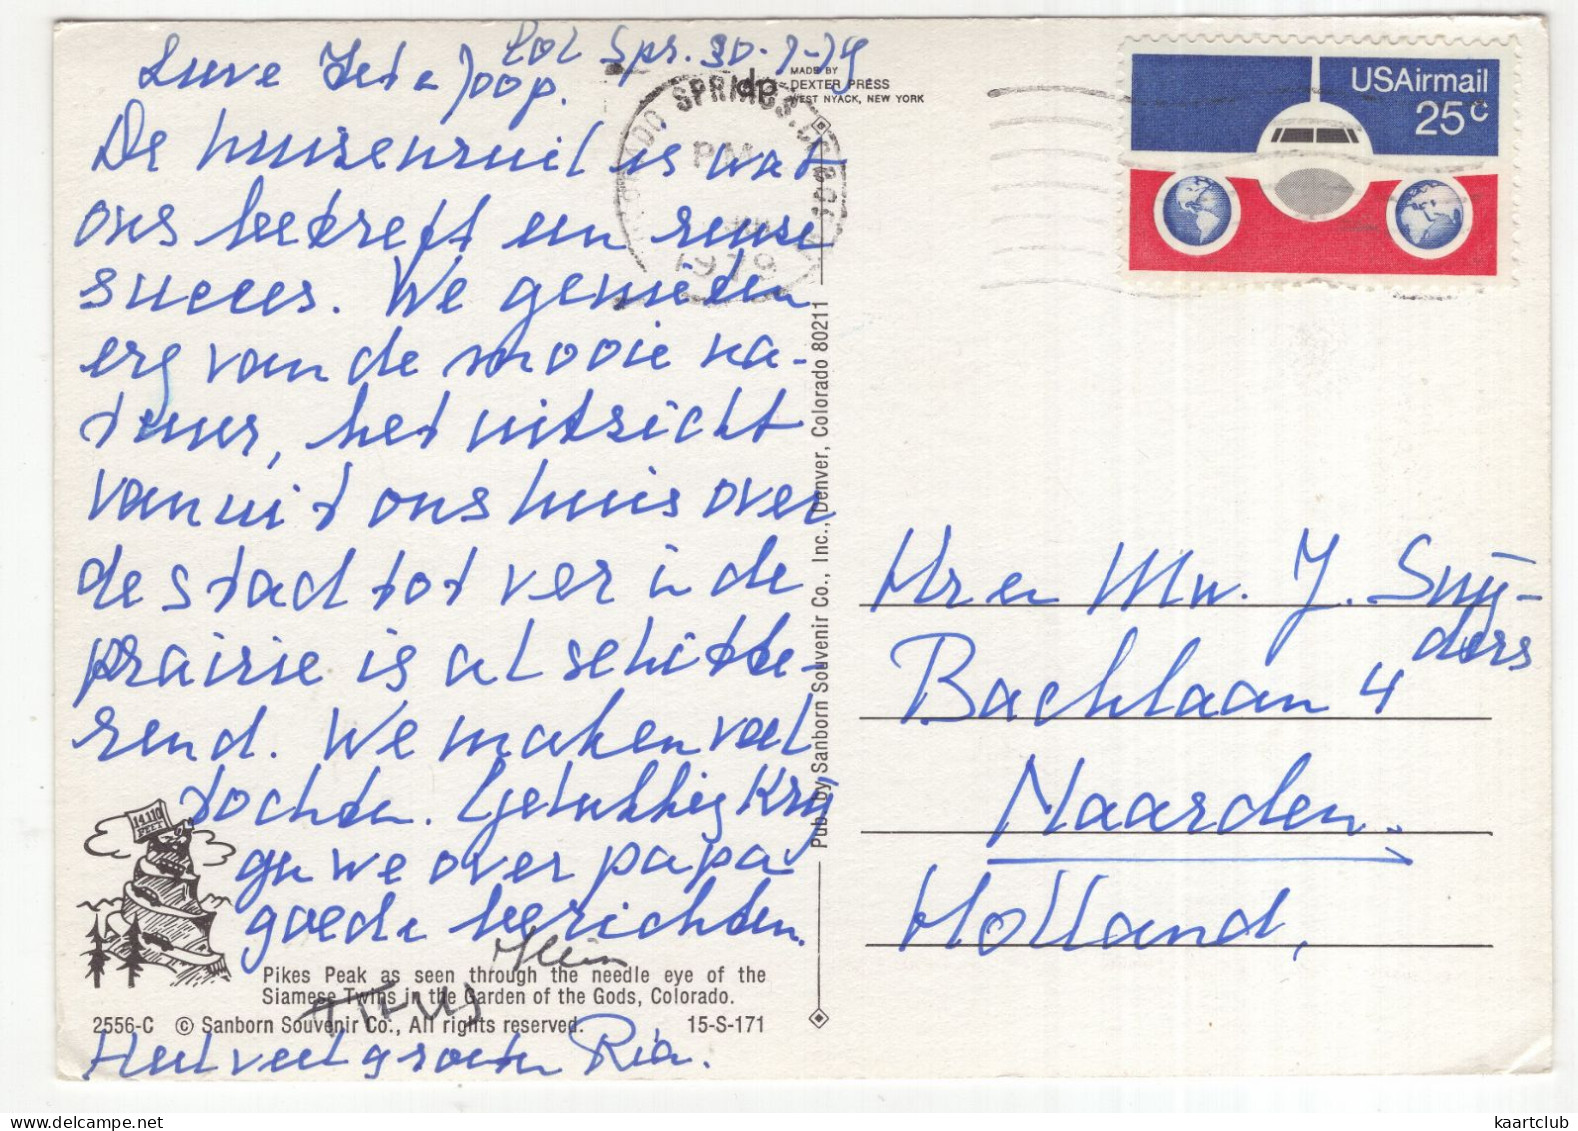 Col Spr. 30-7-79
Lieve Jet en Joop.
De huizenruil is wat
ons betreft een reuze
succes. We genieten
erg van de mooie na-
tuur, het uitzicht
vanuit ons huis over
de stad tot ver in de
prairie is al schitte-
rend. We maken veel
tochten. Gelukkig krij
gen we over papa
goede berichten.
Pikes Peak as seen through the needle eye of the
Siamese Twins in the Garden of the Gods, Colorado.
2556-C © Sanborn Souvenir Co., All rights reserved. 15-S-171
Heel veel groeten Ria.
14,110
FEET
MADE BY
dp DEXTER PRESS
WEST NYACK, NEW YORK
COLORADO SPRINGS, CO
PM
1979
Pub. by Sanborn Souvenir Co., Inc., Denver, Colorado 80211
USAirmail
25c
Hr en Mw. J. Snij-
ders
Bachlaan 4
Naarden.
Holland.
kaartclub